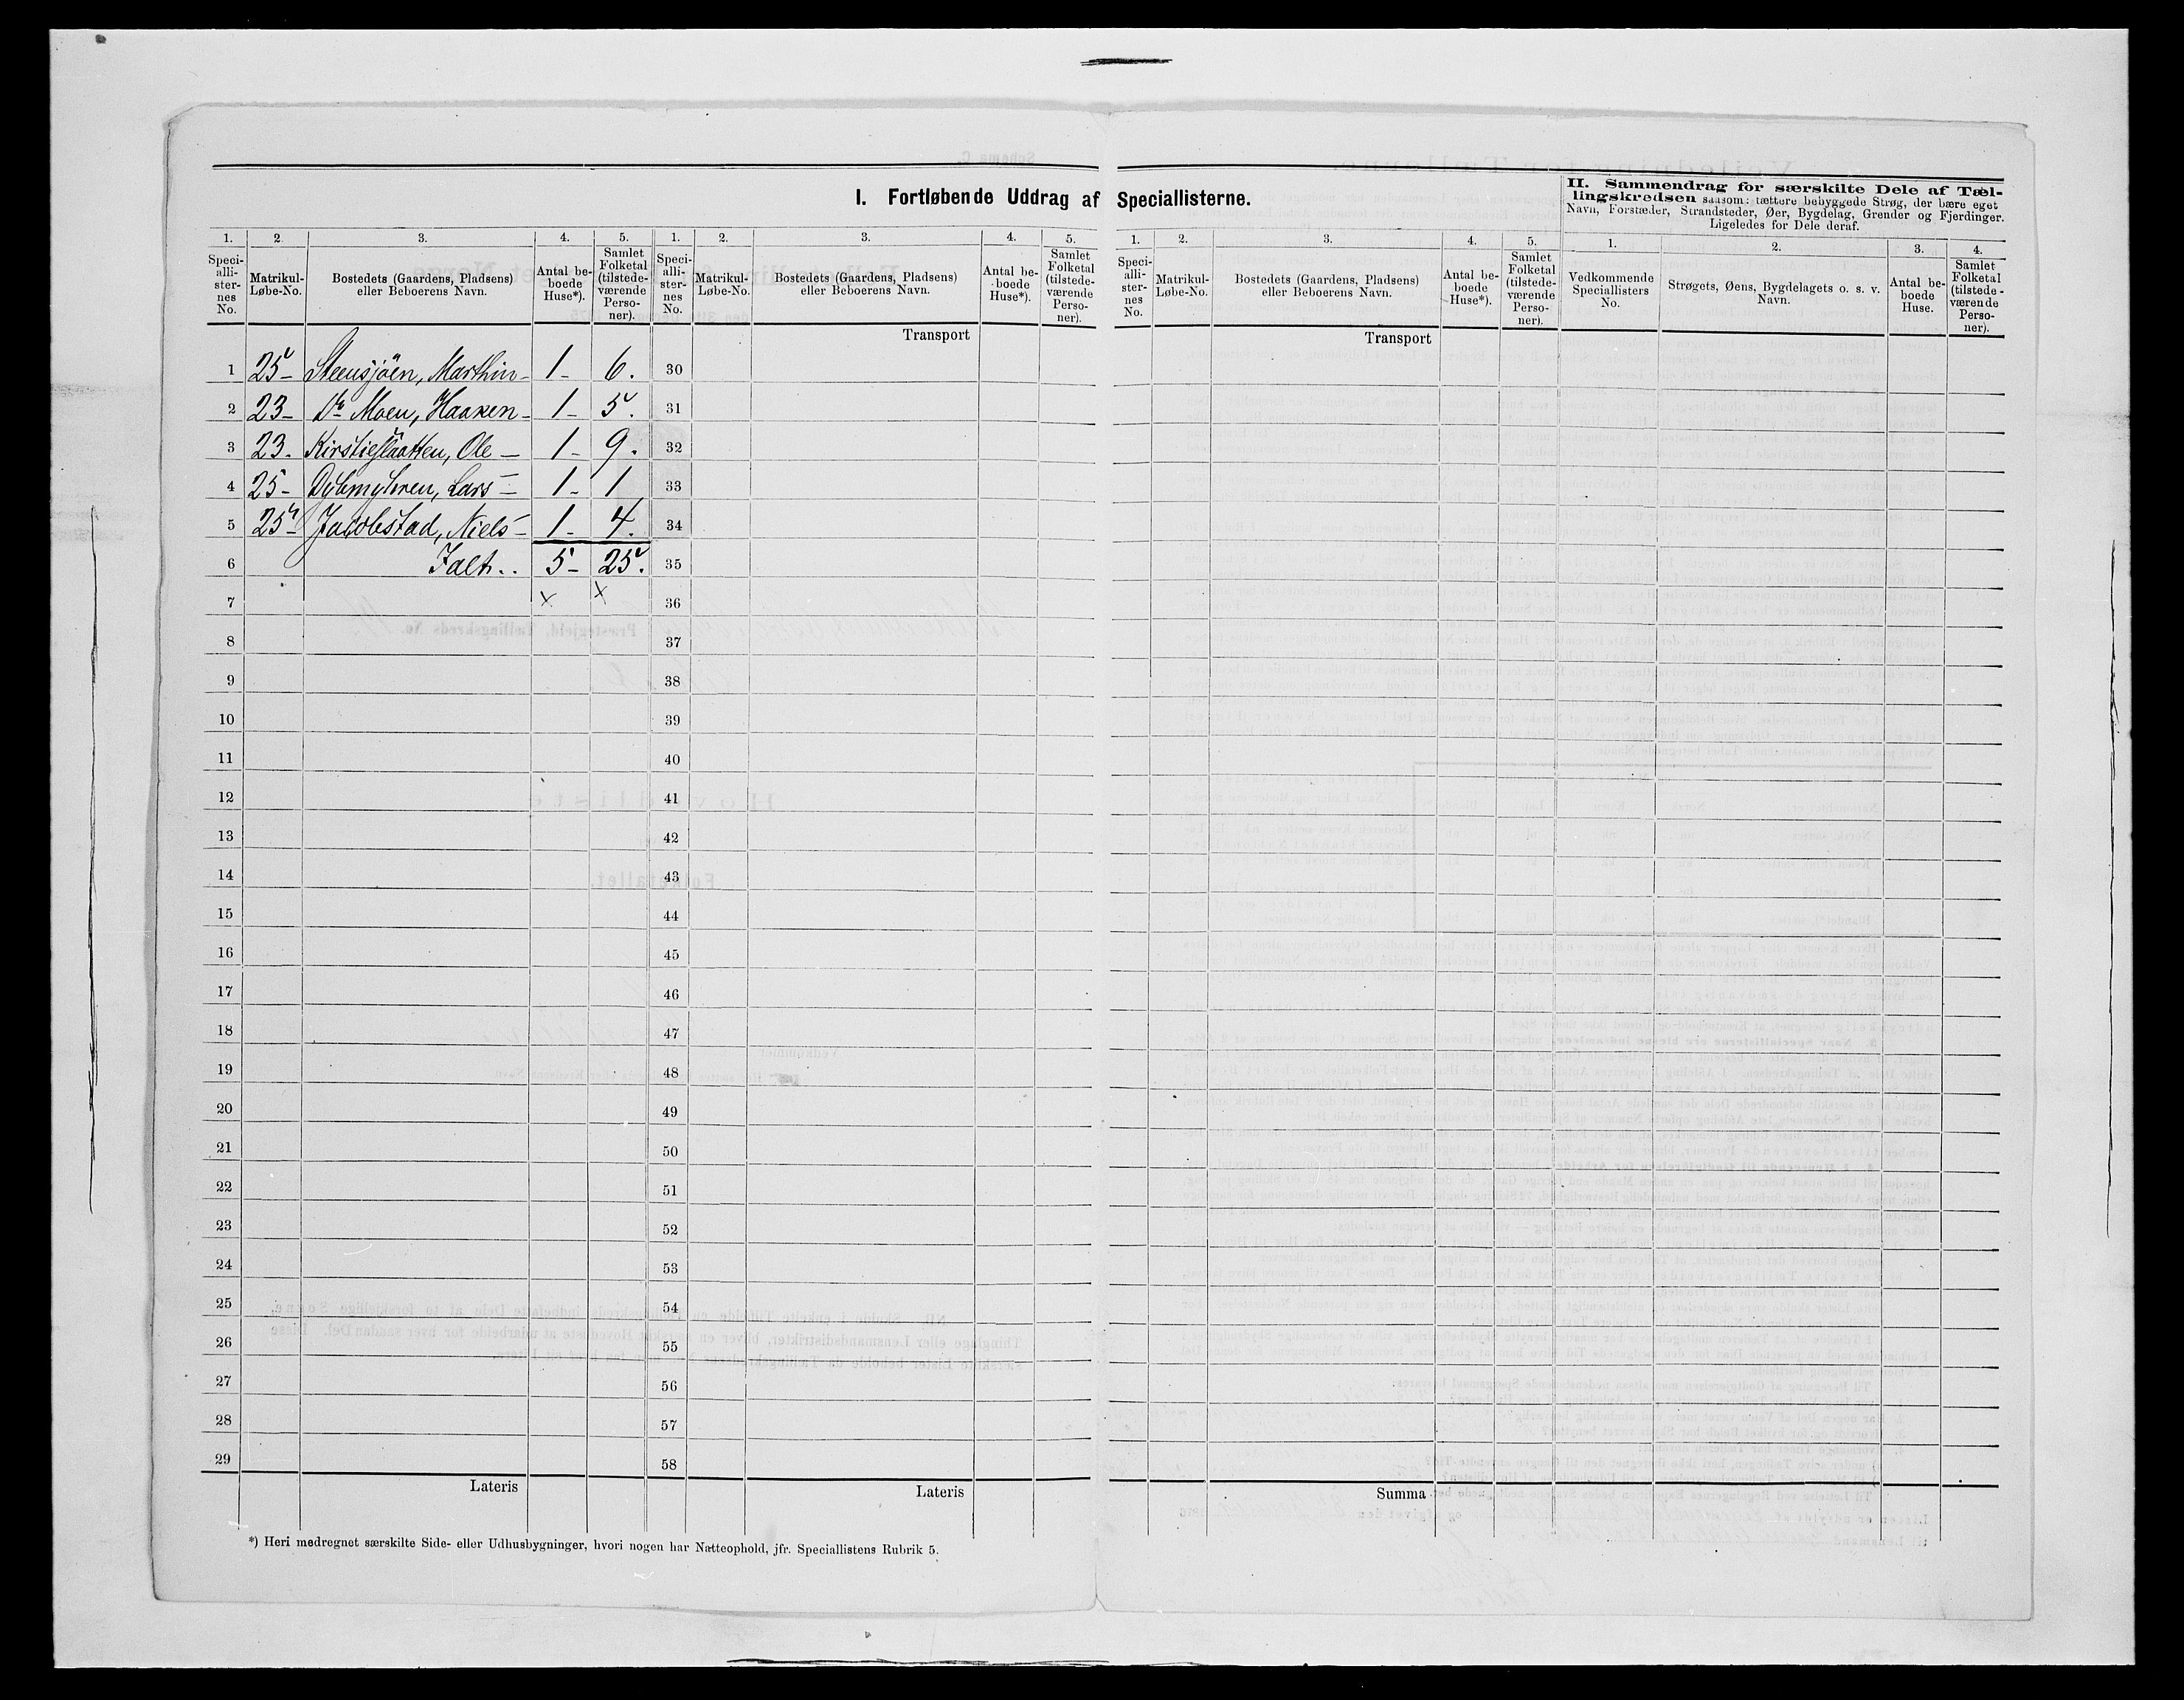 I. Fortløbende Uddrag af Speciallisterne.
II. Sammendrag for særskilte Dele af Tæl-
lingskredsen saasom: tættere bebyggede Strøg, der bære eget
Navn, Forstæder, Strandsteder, Øer, Bygdelag, Grender og Fjerdinger.
Ligeledes for Dele deraf.
1. 2. 3. 4. 5. 1. 2. 3. 4. 5. 1. 2. 3. 4. 5. 1. 2. 3. 4.
Speci-
alli-
ster-
nes
No.
Matrikul-
Løbe-No.
Bostedets (Gaardens, Pladsens)
eller Beboerens Navn.
Antal be-
boede
Huse*).
Samlet
Folketal
(tilstede-
værende
Perso-
ner).
Speci-
alli-
ster-
nes
No.
Matrikul-
Løbe-No.
Bostedets (Gaardens, Pladsens)
eller Beboerens Navn.
Antal be-
boede
Huse*).
Samlet
Folketal
(tilstede-
værende
Perso-
ner).
Speci-
alli-
ster-
nes
No.
Matrikul-
Løbe-No.
Bostedets (Gaardens, Pladsens)
eller Beboerens Navn.
Antal be-
boede
Huse*).
Samlet
Folketal
(tilstede-
værende
Perso-
ner).
Vedkommende
Speciallisters
No.
Strøgets, Øens, Bygdelagets o. s. v.
Navn.
Antal be-
boede
Huse.
Samlet
Folketal
(tilstede-
værende
Perso-
ner).
Transport Transport
1 25- Steensjöen, Marthin- 1- 6. 30
2 23- Do Moen, Haaken- 1- 5. 31
3 23. Kirstieslaatten, Ole- 1- 9. 32
4 25- Dybmyhren, Lars- 1- 1 33
5 25- Jacobstad, Niels- 1- 4. 34
6 Ialt.. 5- 25. 35
7 x x 36
8 37
9 38
10 39
11 40
12 41
13 42
14 43
15 44
16 45
17 46
18 47
19 48
20 49
21 50
22 51
23 52
24 53
25 54
26 55
27 56
28 57
29 58
Lateris Lateris Summa
*) Heri medregnet særskilte Side- eller Udhusbygninger, hvori nogen har Natteophold, jfr. Speciallistens Rubrik 5.